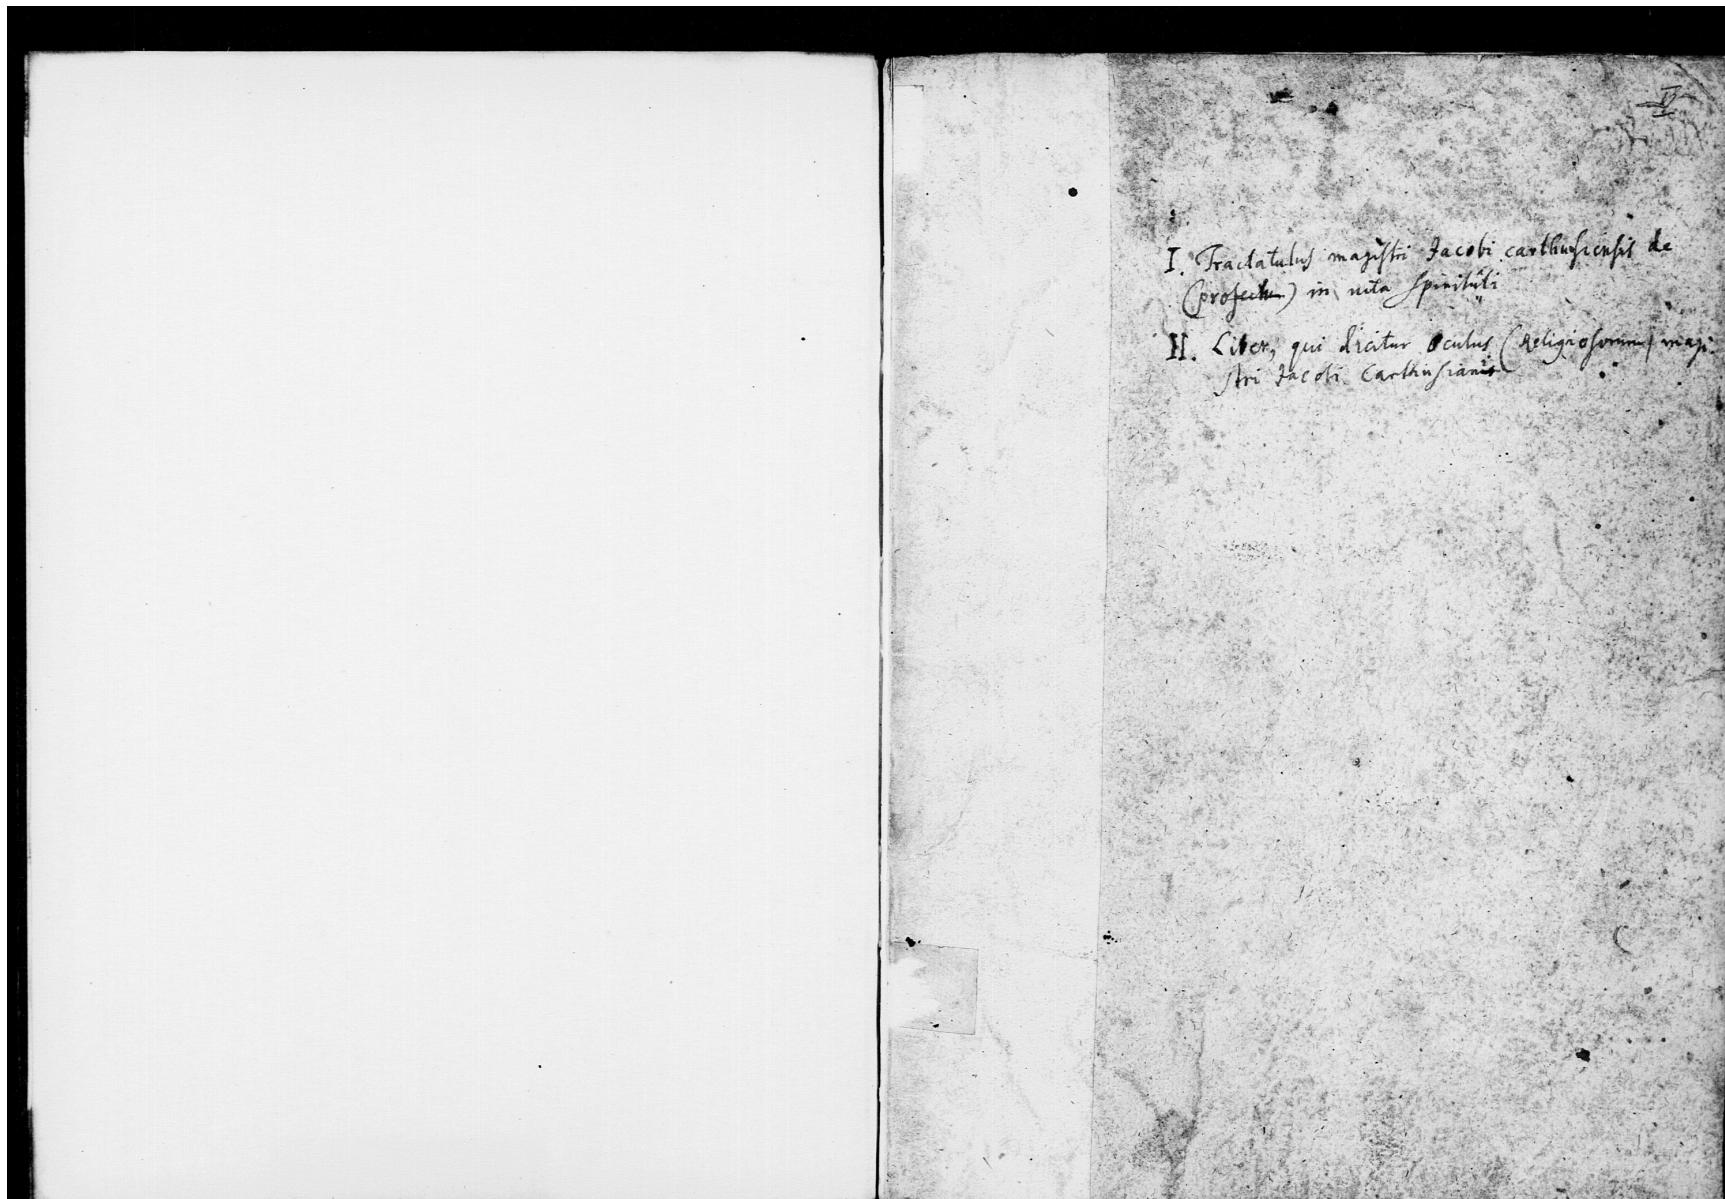 I. Tractatulus magistri Jacobi carthusiensis de
(profectu) in vita spirituali
II. Liber, qui dicitur Oculus (Religiosorum) magi-
stri Jacobi Carthusianis